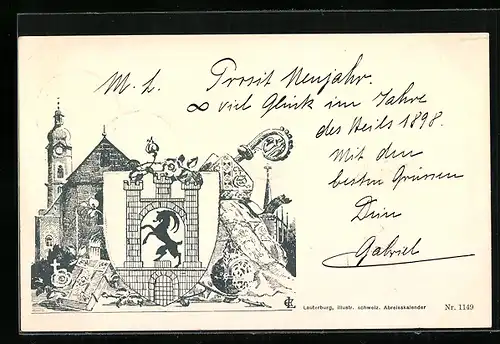 M. L. Prosit Neujahr.
∞ viel Glück im Jahre
des Heils 1898.
Mit den
besten Grüssen
Dein
Gabriel
Lauterburg, illustr. schweiz. Abreisskalender Nr. 1149